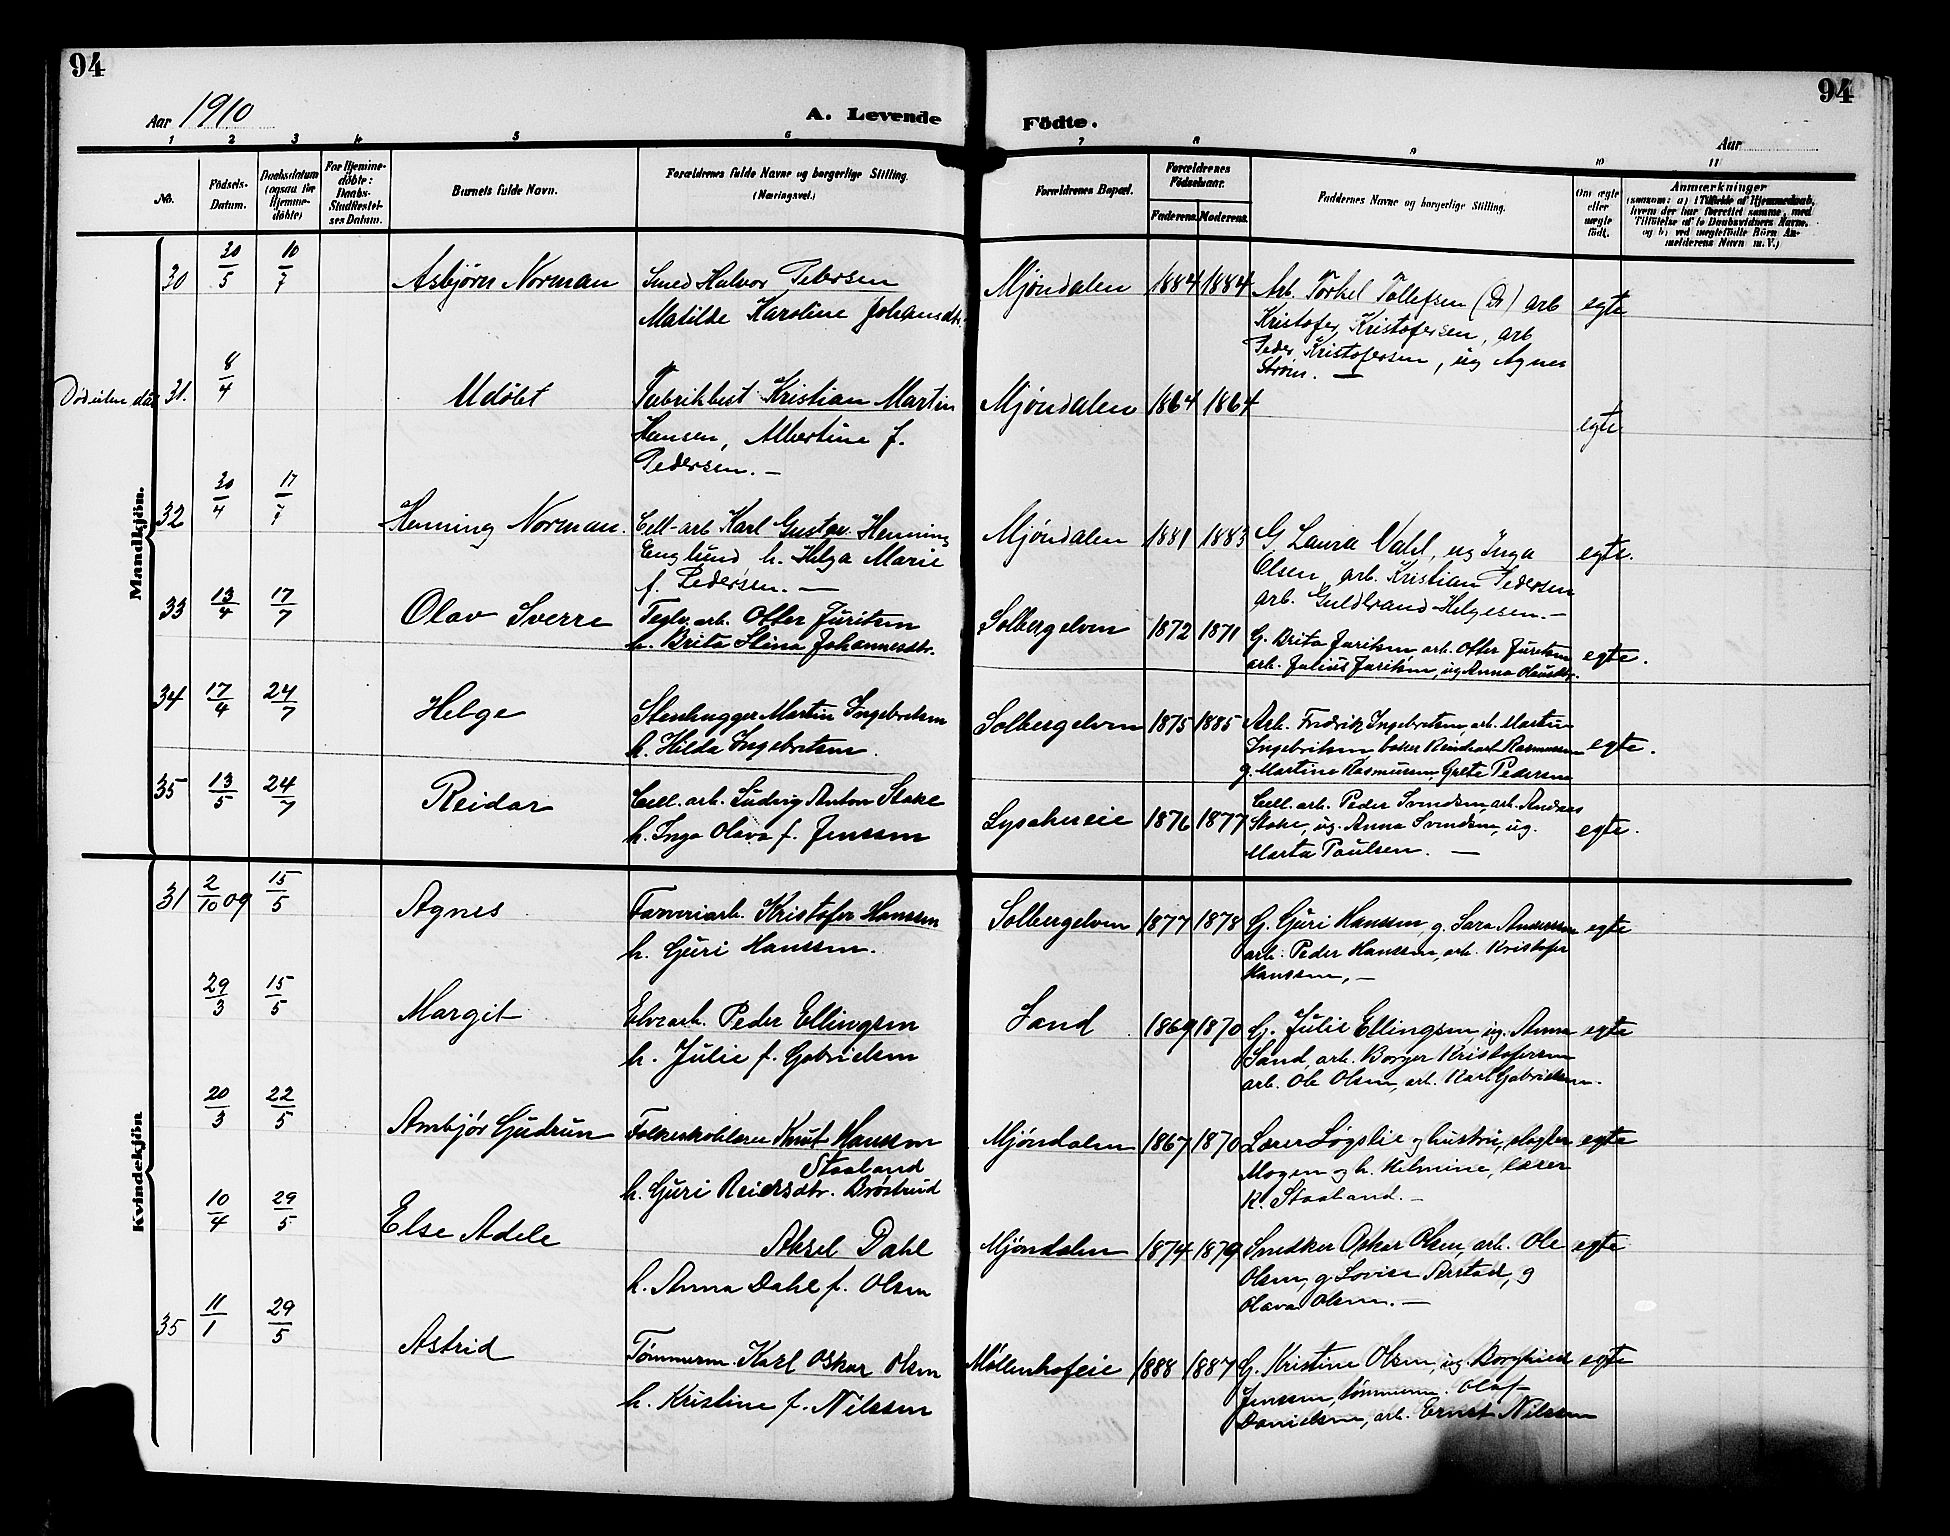 94
94
Aar 1910
A. Levende
Födte.
Aar
1 2 3 4 5 6 7 8 9 10 11
No.
Födsels-
Datum.
Daabsdatum
(ogsaa for
Hjemme-
døbte)
For Hjemme-
døbte:
Daabs-
Stadfæstel-
ses Datum.
Barnets fulde Navn.
Forældrenes fulde Navne og borgerlige Stilling.
(Næringsvei.)
Forældrenes Bopæl.
Forældrenes
Födselsaar.
Faderens. Moderens.
Faddernes Navne og borgerlige Stilling.
Om ægte
eller
uægte
født.
Anmærkninger
(saasom: a) i Tilfælde af Hjemmedaab,
hvem der har forrettet samme, med
Tilföielse af to Daabsvidners Navne,
og b) ved uægtefödte Börn An-
melderens Navn m. V.)
Mandkjön.
30 30/5 10/7 Asbjørn Norman
Smed Halvor Petersen
Matilde Karoline Johansdtr.
Mjøndalen 1884 1884
Arb. Torkel Tollefsen (Dr) arb
Kristofer Kristofersen, arb
Peder Kristofersen, ug Agnes
Strøm. —
egte
31. 8/4 Udöbt
Fabrikbest Kristian Martin
Hansen, Albertine f.
Pedersen. —
Mjøndalen 1864 1864
egte
32 30/4 17/7 Henning Norman.
Cell-arb Karl Gustav Henning
Englund, h. Helga Marie
f. Pedersen. —
Mjøndalen 1881 1883
G Laura Vahl, ug Inga
Olsen, arb. Kristian Pedersen
arb. Guldbrand Helgesen. —
egte.
33 13/4 17/7 Olav Sverre
Teglv. arb. Otter Juritsen
h. Brita Stina Johannesdtr.
Solbergelven 1872 1871
G. Brita Juritsen arb. Otter Juritsen
arb. Julius Juritsen, ug Anna
egte.
34 17/4 24/7 Helge
Stenhugger Martin Ingebretsen
h. Hilda Ingebretsen.
Solbergelven 1875 1885
Arb. Fredrik Ingebretsen, arb. Martin
Ingebriktsen baker Reinhart Rasmussen
g. Martine Rasmussen, Grete Pedersen
egte.
35 13/5 24/7 Reidar
Cell. arb. Ludvig Anton Stake
h. Inga Olava f. Jenssen
Lysakereie 1876 1877
Cell. arb. Peder Svendsen, arb. Andreas
Stake, ug. Anna Svendsen, ug.
Marta Paulsen. —
egte.
Kvindekjön
31 2/10 09 15/5 Agnes
Farveriarb. Kristofer Hanssen
h. Guri Hanssen.
Solbergelven 1877 1878
G. Guri Hanssen, g. Sara Anderssen
arb. Peder Hanssen, arb. Kristofer
Hanssen, —
egte
29/3 15/5 Margit
Elvearb. Peder Ellingsen
h. Julie f. Gabrielsen
Sand 1869 1870
G. Julie Ellingsen, ug. Anna
Sand, arb. Borger Kristofersen
arb. Ole Olsen, arb. Karl Gabrielsen.
egte
20/3 22/5 Ambjør Gudrun
Folkeskolelærer Knut Hanssen
Staaland
h. Guri Reiersdtr. Brøstrud
Mjöndalen 1867 1870
Lærer Løgslie og hustru, slagter
Mogen og h. Helmine, lærer
K. Staaland. —
egte
10/4 29/5 Else Adele
Aksel Dahl
h. Anna Dahl f. Olsen
Mjöndalen 1874 1879
Snedker Oskar Olsen, arb. Ole
Olsen, g Lovise Aerstad, g
Olava Olsen. —
egte
35 11/1 29/5 Astrid
Tömmerm. Karl Oskar Olsen
h. Kristine f. Nilssen
Møllenhofeie 1888 1887
G. Kristine Olsen, ug. Borghild
Jenssen, tömmerm. Olaf
Danielsen, arb. Ernst Nilssen
egte